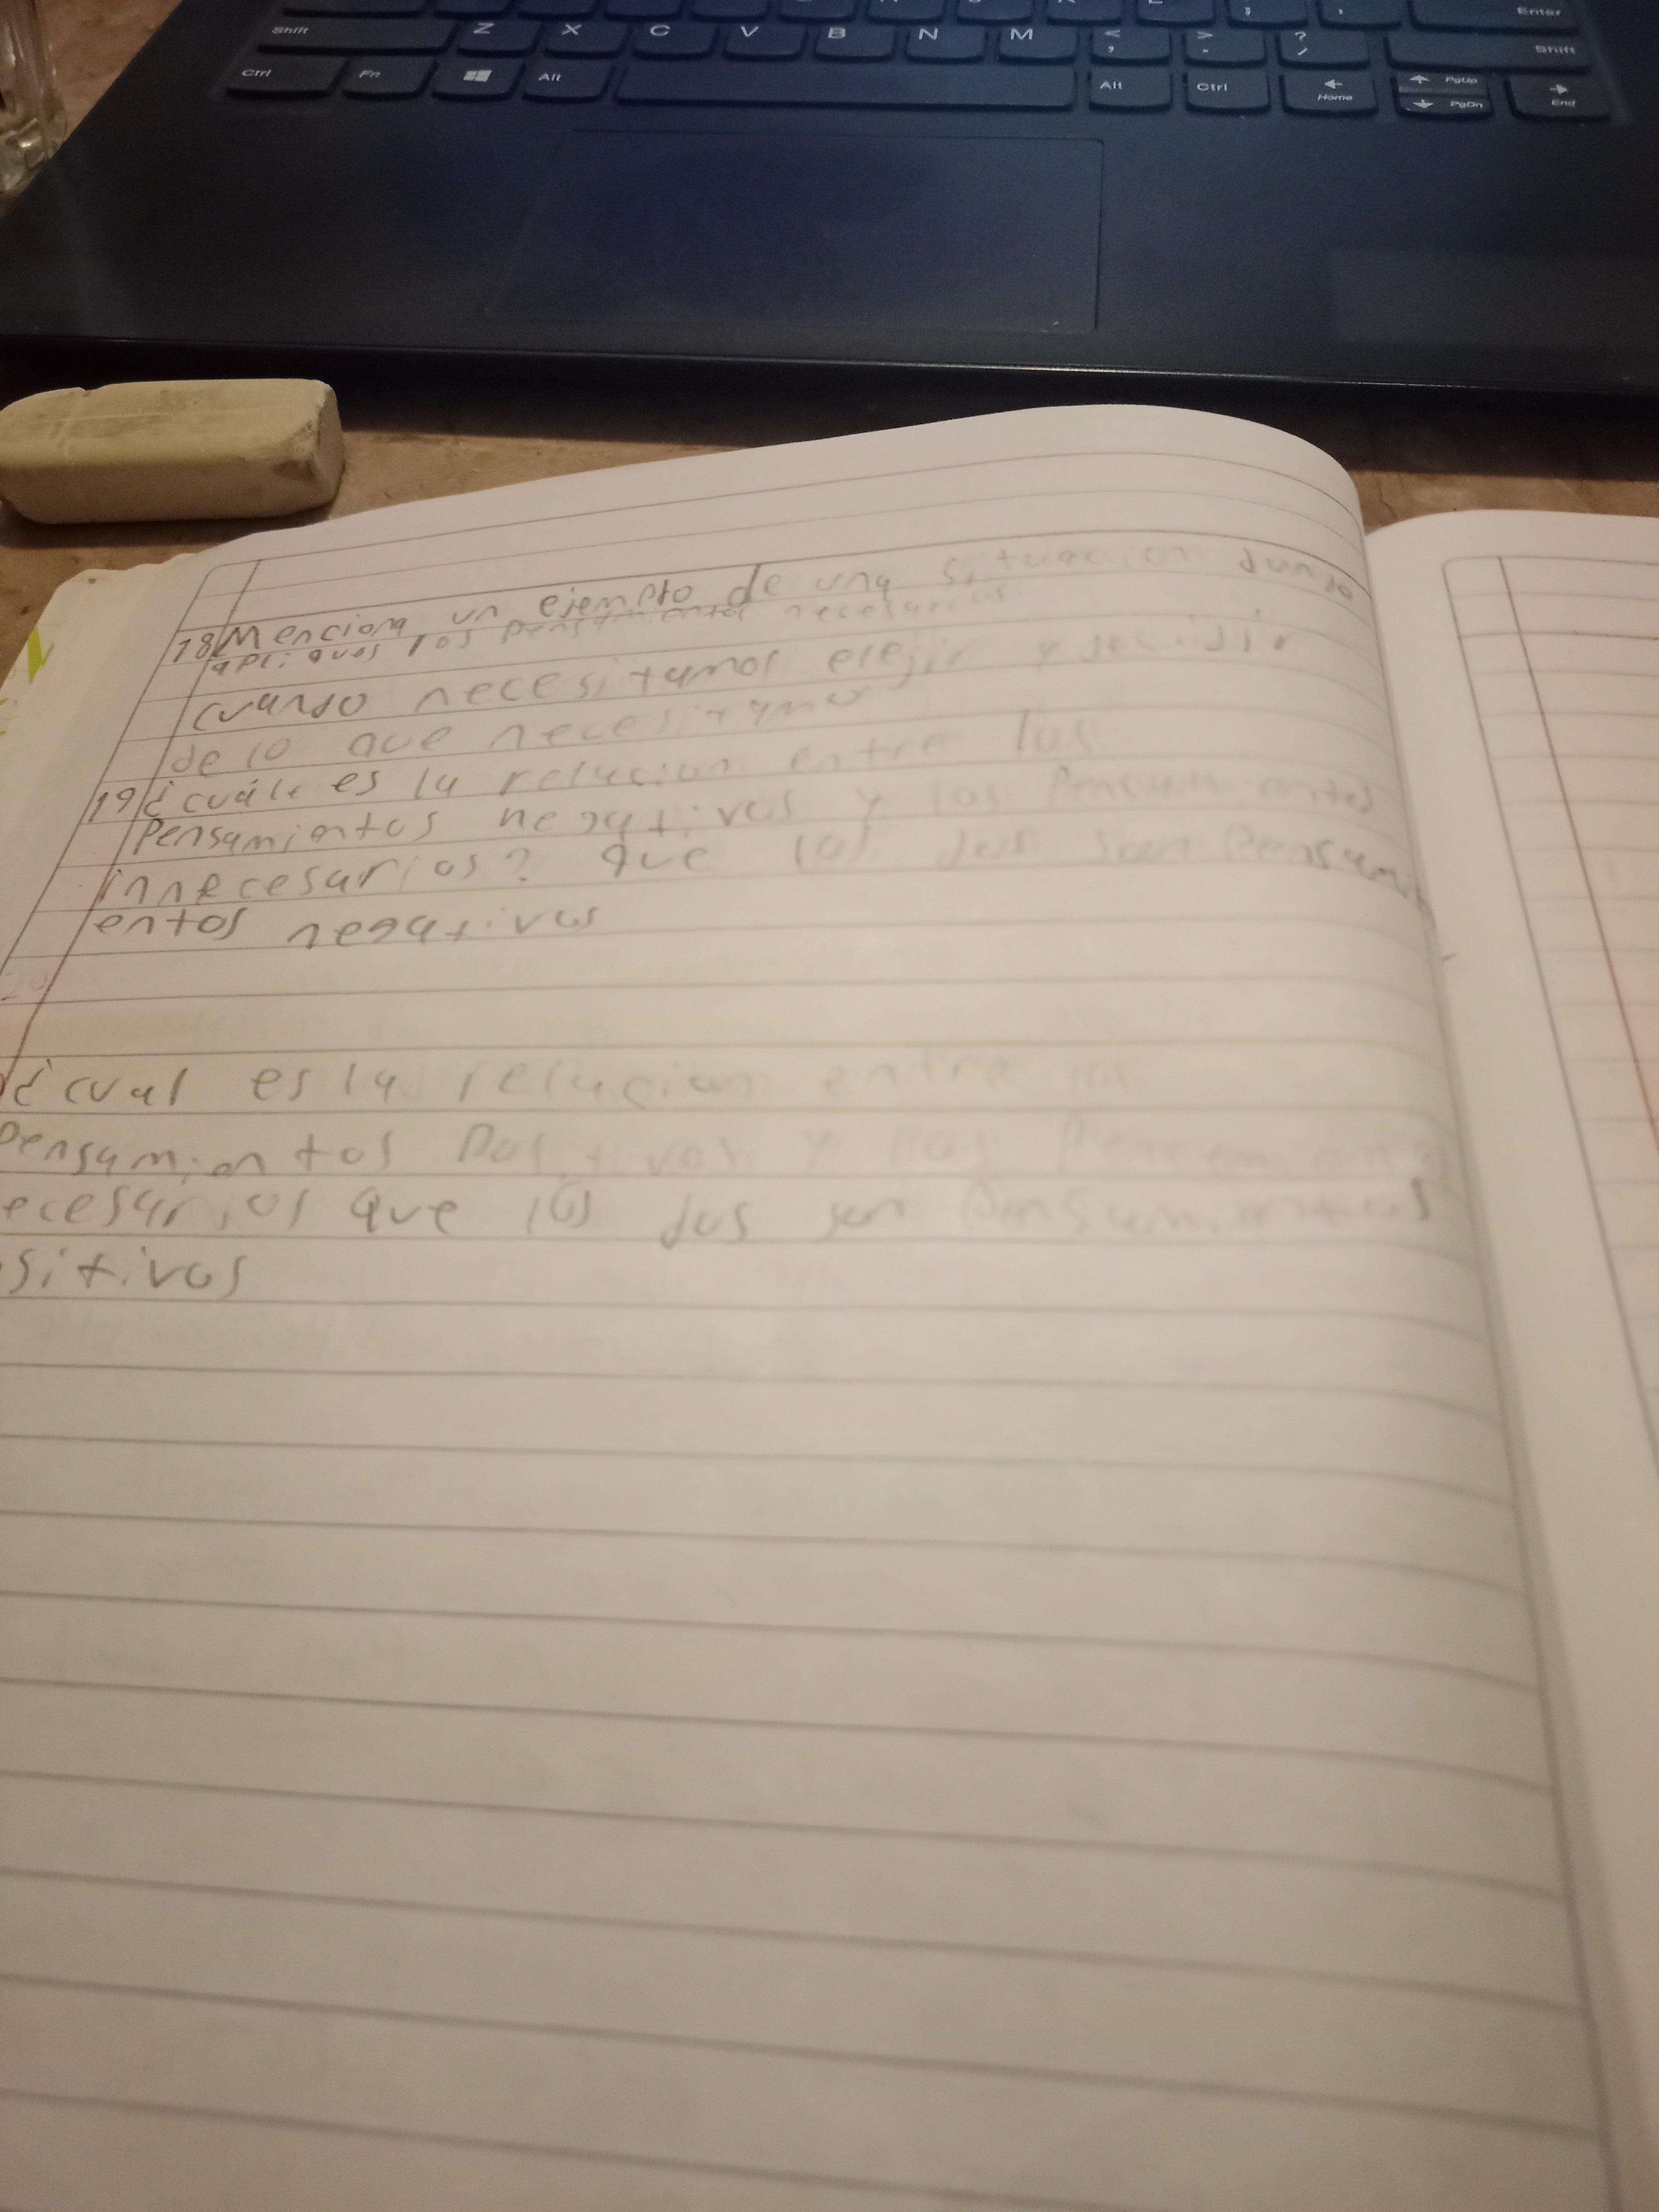 Shift Z X C V B N M < , > . ? / Shift
Enter
Ctrl Fn Alt Alt Ctrl Home PgUp PgDn End
18 Menciona un ejemplo de una situacion dundo
apliques los pensamientos necesarios
cuando necesitamos elejir y decidir
de lo que necesitamo
19 ¿cuále es la relucion entre los
Pensamientos negativos y los Pensamientos
innecesarios? que los dos son Pensami
entos negativos
20
¿cual es la relacion entre los
pensamientos Positivos y los Pensamientos
ecesarios que los dos son Pensamientos
sitivos